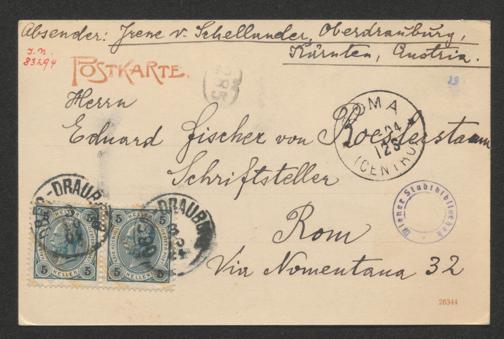 Absender: Irene v. Schellander, Oberdrauburg,
Kärnten, Austria.
J.N.
83294
POSTKARTE.
Herrn
Eduard Fischer von Roeslerstamm
Schriftsteller
Rom
Via Nomentana 32
ROMA
(CENTRO)
Wiener Stadtbibliothek
5 5 5 5
HELLER HELLER
26344